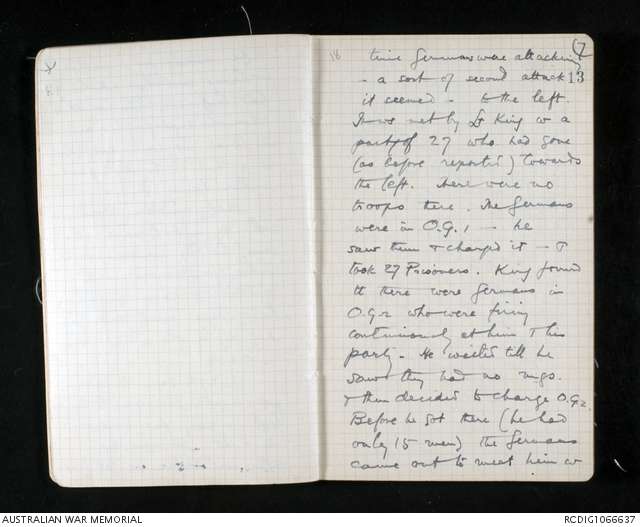 18
7
time Germans were attacking
– a sort of second attack 13
it seemed – to the left.
It was met by Lt King w a
party of 27 who had gone
(as before reported) towards
the left. There were no
troops there. The Germans
were in O.G.1 – he
saw them & charged it – &
took 27 Prisoners. King found
tt there were Germans in
O.G.2 who were firing
continuously at him & his
party. He waited till he
saw they had no m.gs.
& then decided to charge O.G2.
Before he got there (he had
only 15 men) the Germans
came out to meet him w
AUSTRALIAN WAR MEMORIAL
RCDIG1066637